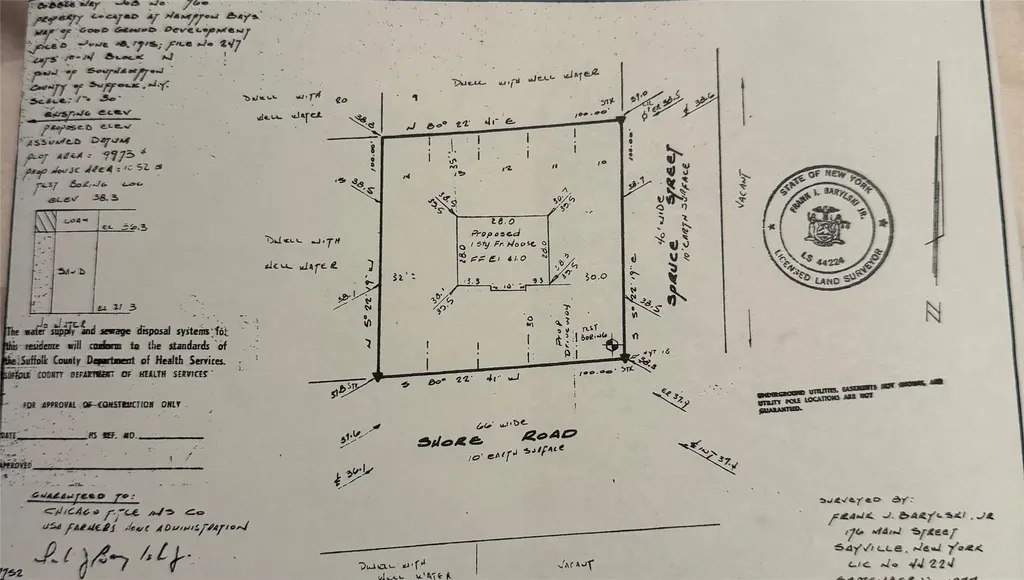 JOB NO 760
PROPERTY LOCATED AT HAMPTON BAYS
MAP OF GOOD GROUND DEVELOPMENT
FILED JUNE 18, 1915; FILE NO 247
LOTS 10-14 BLOCK N
TOWN OF SOUTHAMPTON
COUNTY OF SUFFOLK, N.Y.
SCALE: 1"= 30'
EXISTING ELEV
PROPOSED ELEV
ASSUMED DATUM
PLOT AREA: 9973
PROP HOUSE AREA:
TEST BORING LOG
ELEV 38.3
LOAM
EL 36.3
SAND
EL 21.3
NO WATER
The water supply and sewage disposal systems for
this residence will conform to the standards of
the Suffolk County Department of Health Services.
SUFFOLK COUNTY DEPARTMENT OF HEALTH SERVICES
FOR APPROVAL OF CONSTRUCTION ONLY
DATE
HS REF. NO.
APPROVED
GUARANTEED TO:
CHICAGO TITLE INS CO
USA FARMERS HOME ADMINISTRATION
DWELL WITH WELL WATER
DWELL WITH
WELL WATER
20
9
38.8
N 80° 22' 41" E
100.00'
STK
37.0
38.5
38.6
100.00'
100.00'
35'
12
11
10
38.7
38.5
28.0
Proposed
1 Sty Fr. House
FF El 41.0
28.0
28.0
DWELL WITH
WELL WATER
32'
30.0
13.3
10'
38.1
30
PROP
DRIVEWAY
TEST
BORING
N 5° 22' 19" W
S 5° 22' 19" E
S 80° 22' 41" W
100.00'
STK
SPRUCE STREET
40' WIDE
10' EARTH SURFACE
VACANT
STATE OF NEW YORK
FRANK J. BARYLSKI JR.
LS 44224
LICENSED LAND SURVEYOR
N
UNDERGROUND UTILITIES, EASEMENTS NOT SHOWN, AND
UTILITY POLE LOCATIONS ARE NOT
GUARANTEED.
66' WIDE
SHORE ROAD
10' EARTH SURFACE
37.6
36.1
37.9
INT 37.4
DWELL WITH
WELL WATER
VACANT
SURVEYED BY:
FRANK J. BARYLSKI, JR
176 MAIN STREET
SAYVILLE, NEW YORK
LIC NO 44224